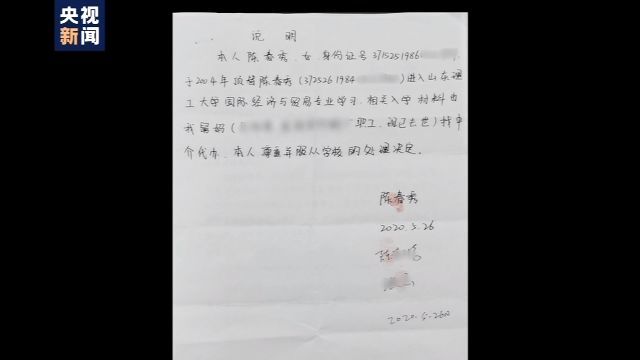 央视
新闻
说 明
本人陈春秀,女,身份证号3715251986
于2004年顶替陈春秀(3725261984 )进入山东理
工大学国际经济与贸易专业学习,相关入学材料由
我舅妈( 职工,现已去世)找中
介代办,本人尊重并服从学校的处理决定。
陈春秀
2020.5.26
2020.5.26